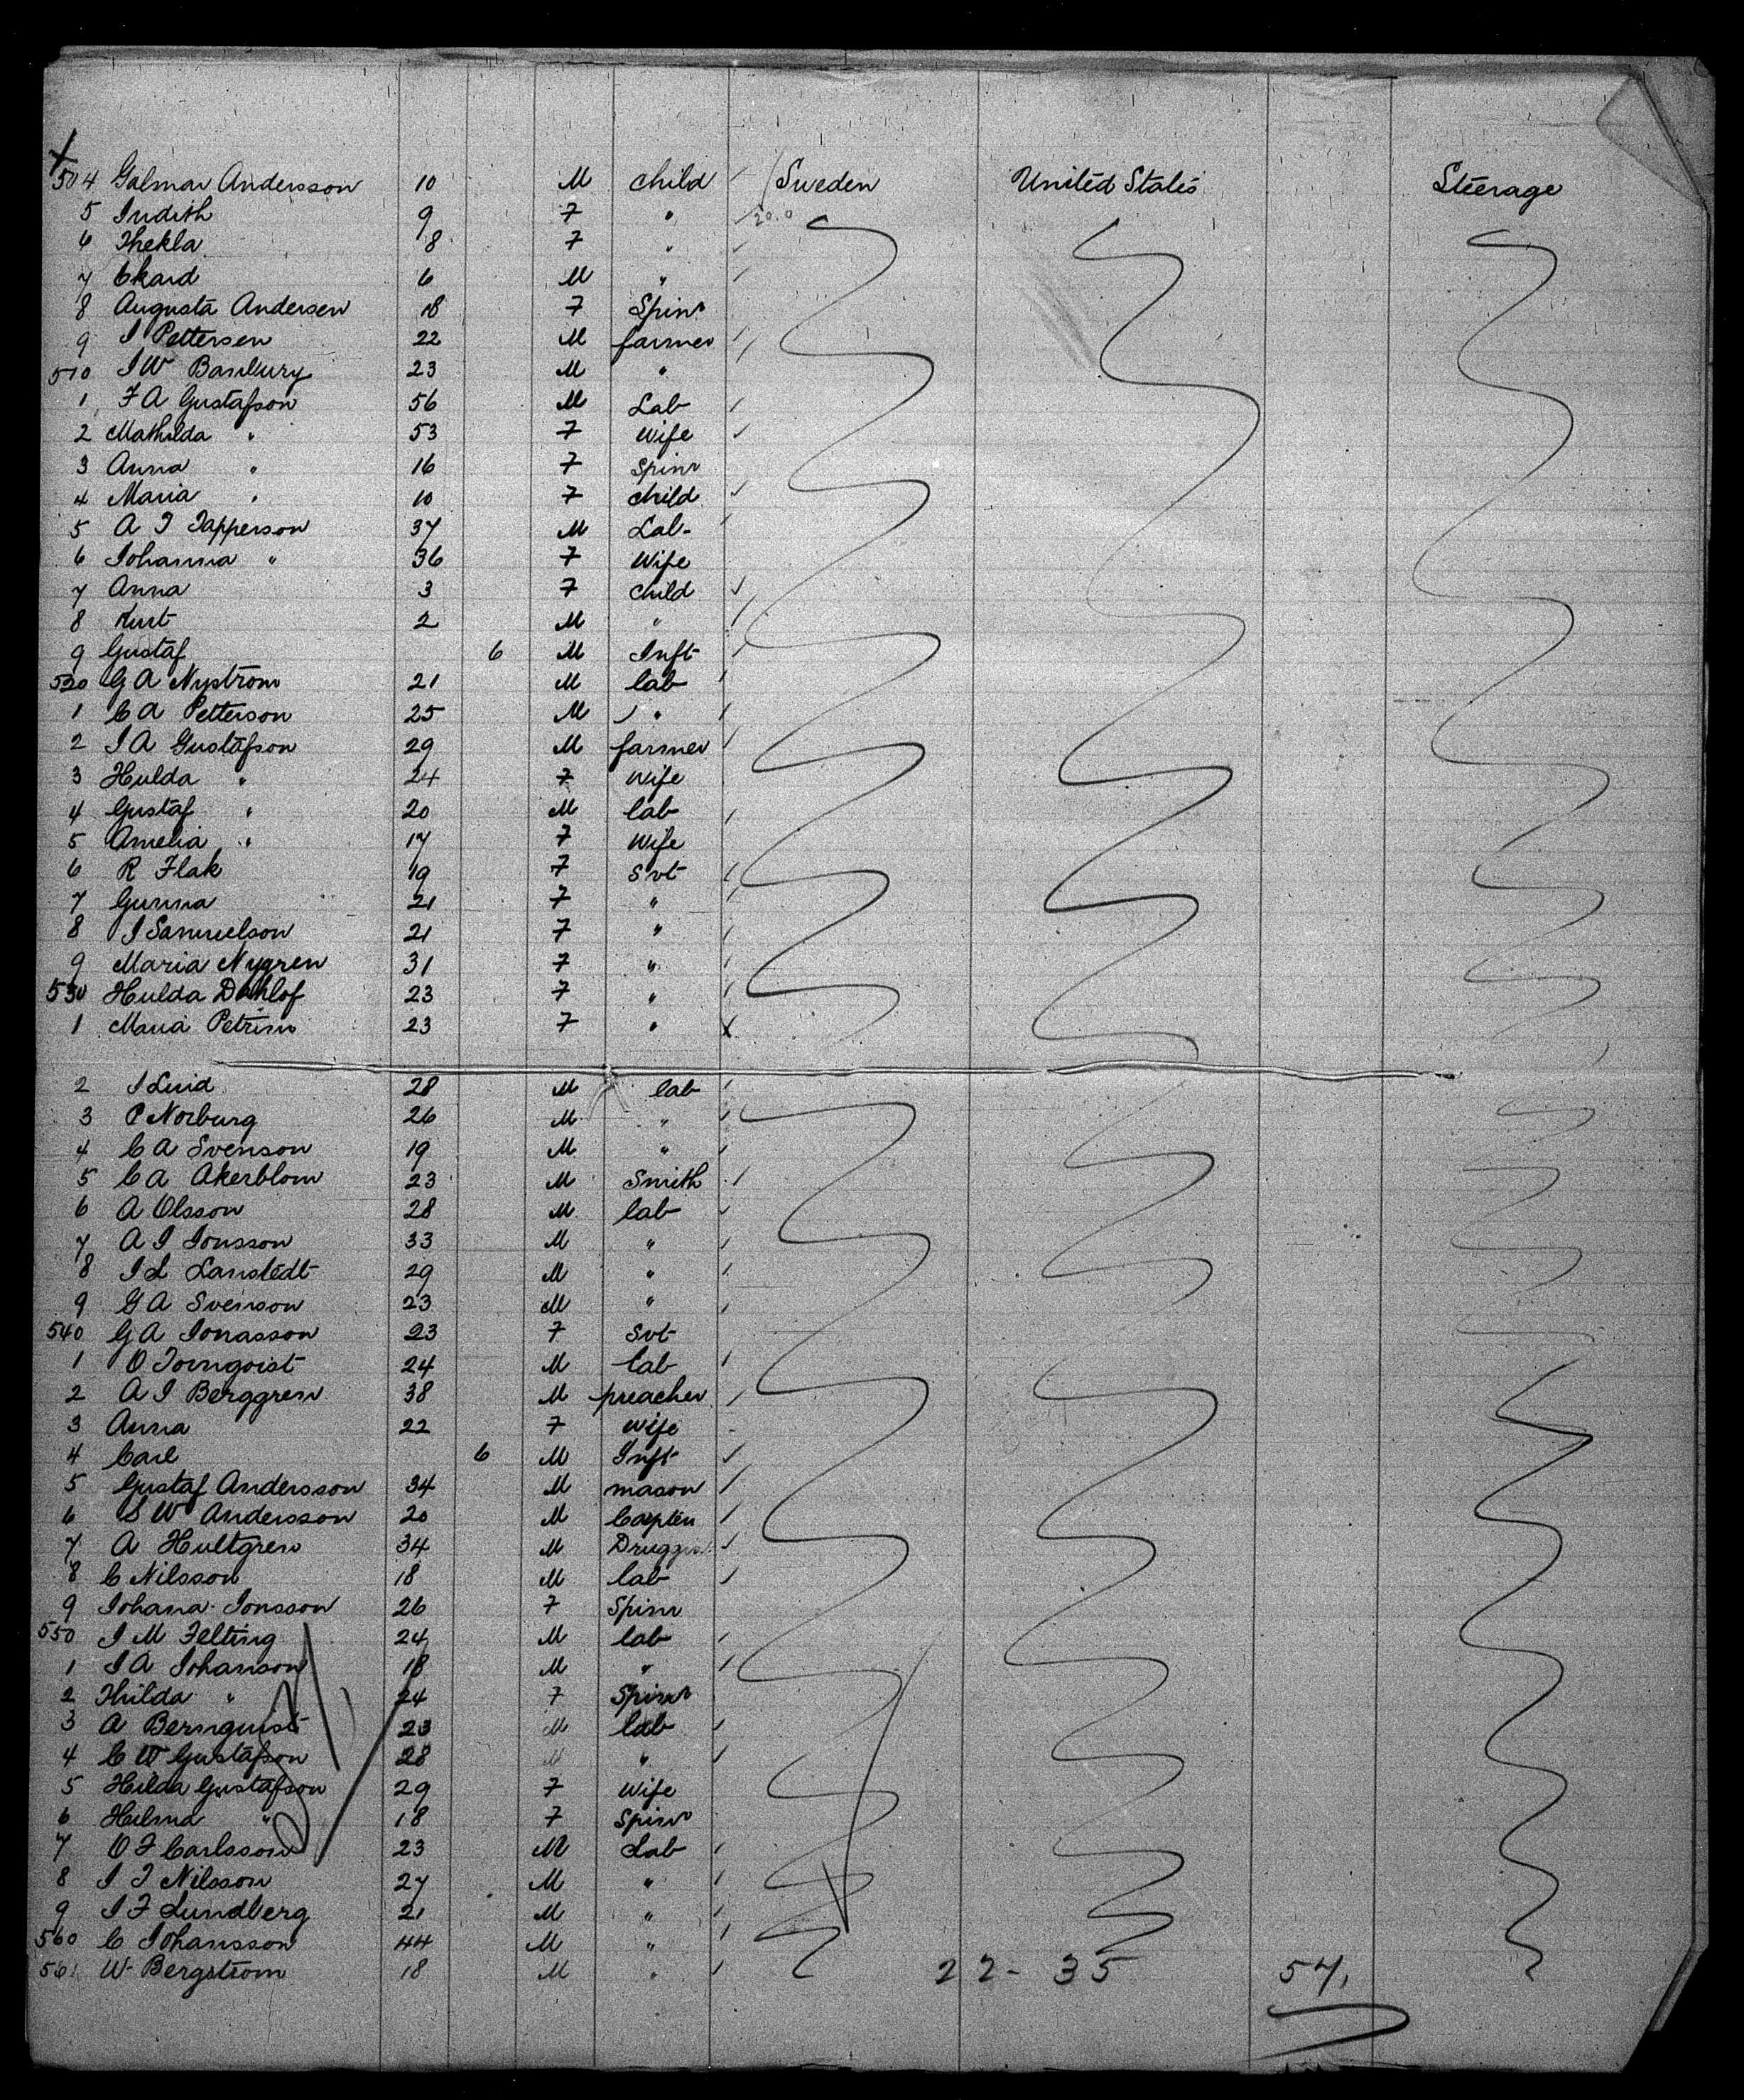 504 Galmar Andersson 10 M child Sweden United States Steerage
5 Judith 9 F "
6 Thekla 8 F "
7 Ekard 6 M "
8 Augusta Andersen 18 F Spinr
9 J Pettersen 22 M farmer
510 J W Banbury 23 M "
1 F A Gustafson 56 M Lab
2 Mathilda " 53 F Wife
3 Anna " 16 F Spinr
4 Maria " 10 F child
5 A J Japperson 37 M Lab-
6 Johanna " 36 F Wife
7 Anna 3 F child
8 Kurt 2 M "
9 Gustaf 6 M Inft
520 G A Nystrom 21 M lab
1 C A Petterson 25 M "
2 J A Gustafson 29 M farmer
3 Hulda " 24 F wife
4 Gustaf " 20 M lab
5 Amelia " 17 F Wife
6 R Flak 19 F Svt
7 Gunna 21 F "
8 J Samuelson 21 F "
9 Maria Nygren 31 F "
530 Hulda Dahlof 23 F "
1 Maria Petrim 23 F "
2 J Luid 28 M lab
3 P Norburg 26 M "
4 C A Svenson 19 M "
5 C A Akerblom 23 M Smith
6 A Olsson 28 M lab
7 A J Jonsson 33 M "
8 J L Lanstedt 29 M "
9 G A Svenson 23 M "
540 G A Jonasson 23 F Svt
1 O Tornqoist 24 M lab
2 A J Berggren 38 M preacher
3 Anna 22 F wife
4 Carl 6 M Inft
5 Gustaf Andersson 34 M mason
6 S W Andersson 20 M Carpten
7 A Hultgren 34 M Druggist
8 C Nilsson 18 M lab
9 Johana Jonsson 26 F Spinr
550 J M Felting 24 M lab
1 J A Johanson 18 M "
2 Hilda " 24 F Spinr
3 A Bernquist 23 M lab
4 C W Gustafson 28 M "
5 Hilda Gustafson 29 F Wife
6 Hilma " 18 F Spinr
7 O F Carlsson 23 M Lab
8 J J Nilsson 27 M "
9 J F Lundberg 21 M "
560 C Johansson 44 M "
561 W Bergstrom 18 M "
22- 35 57,